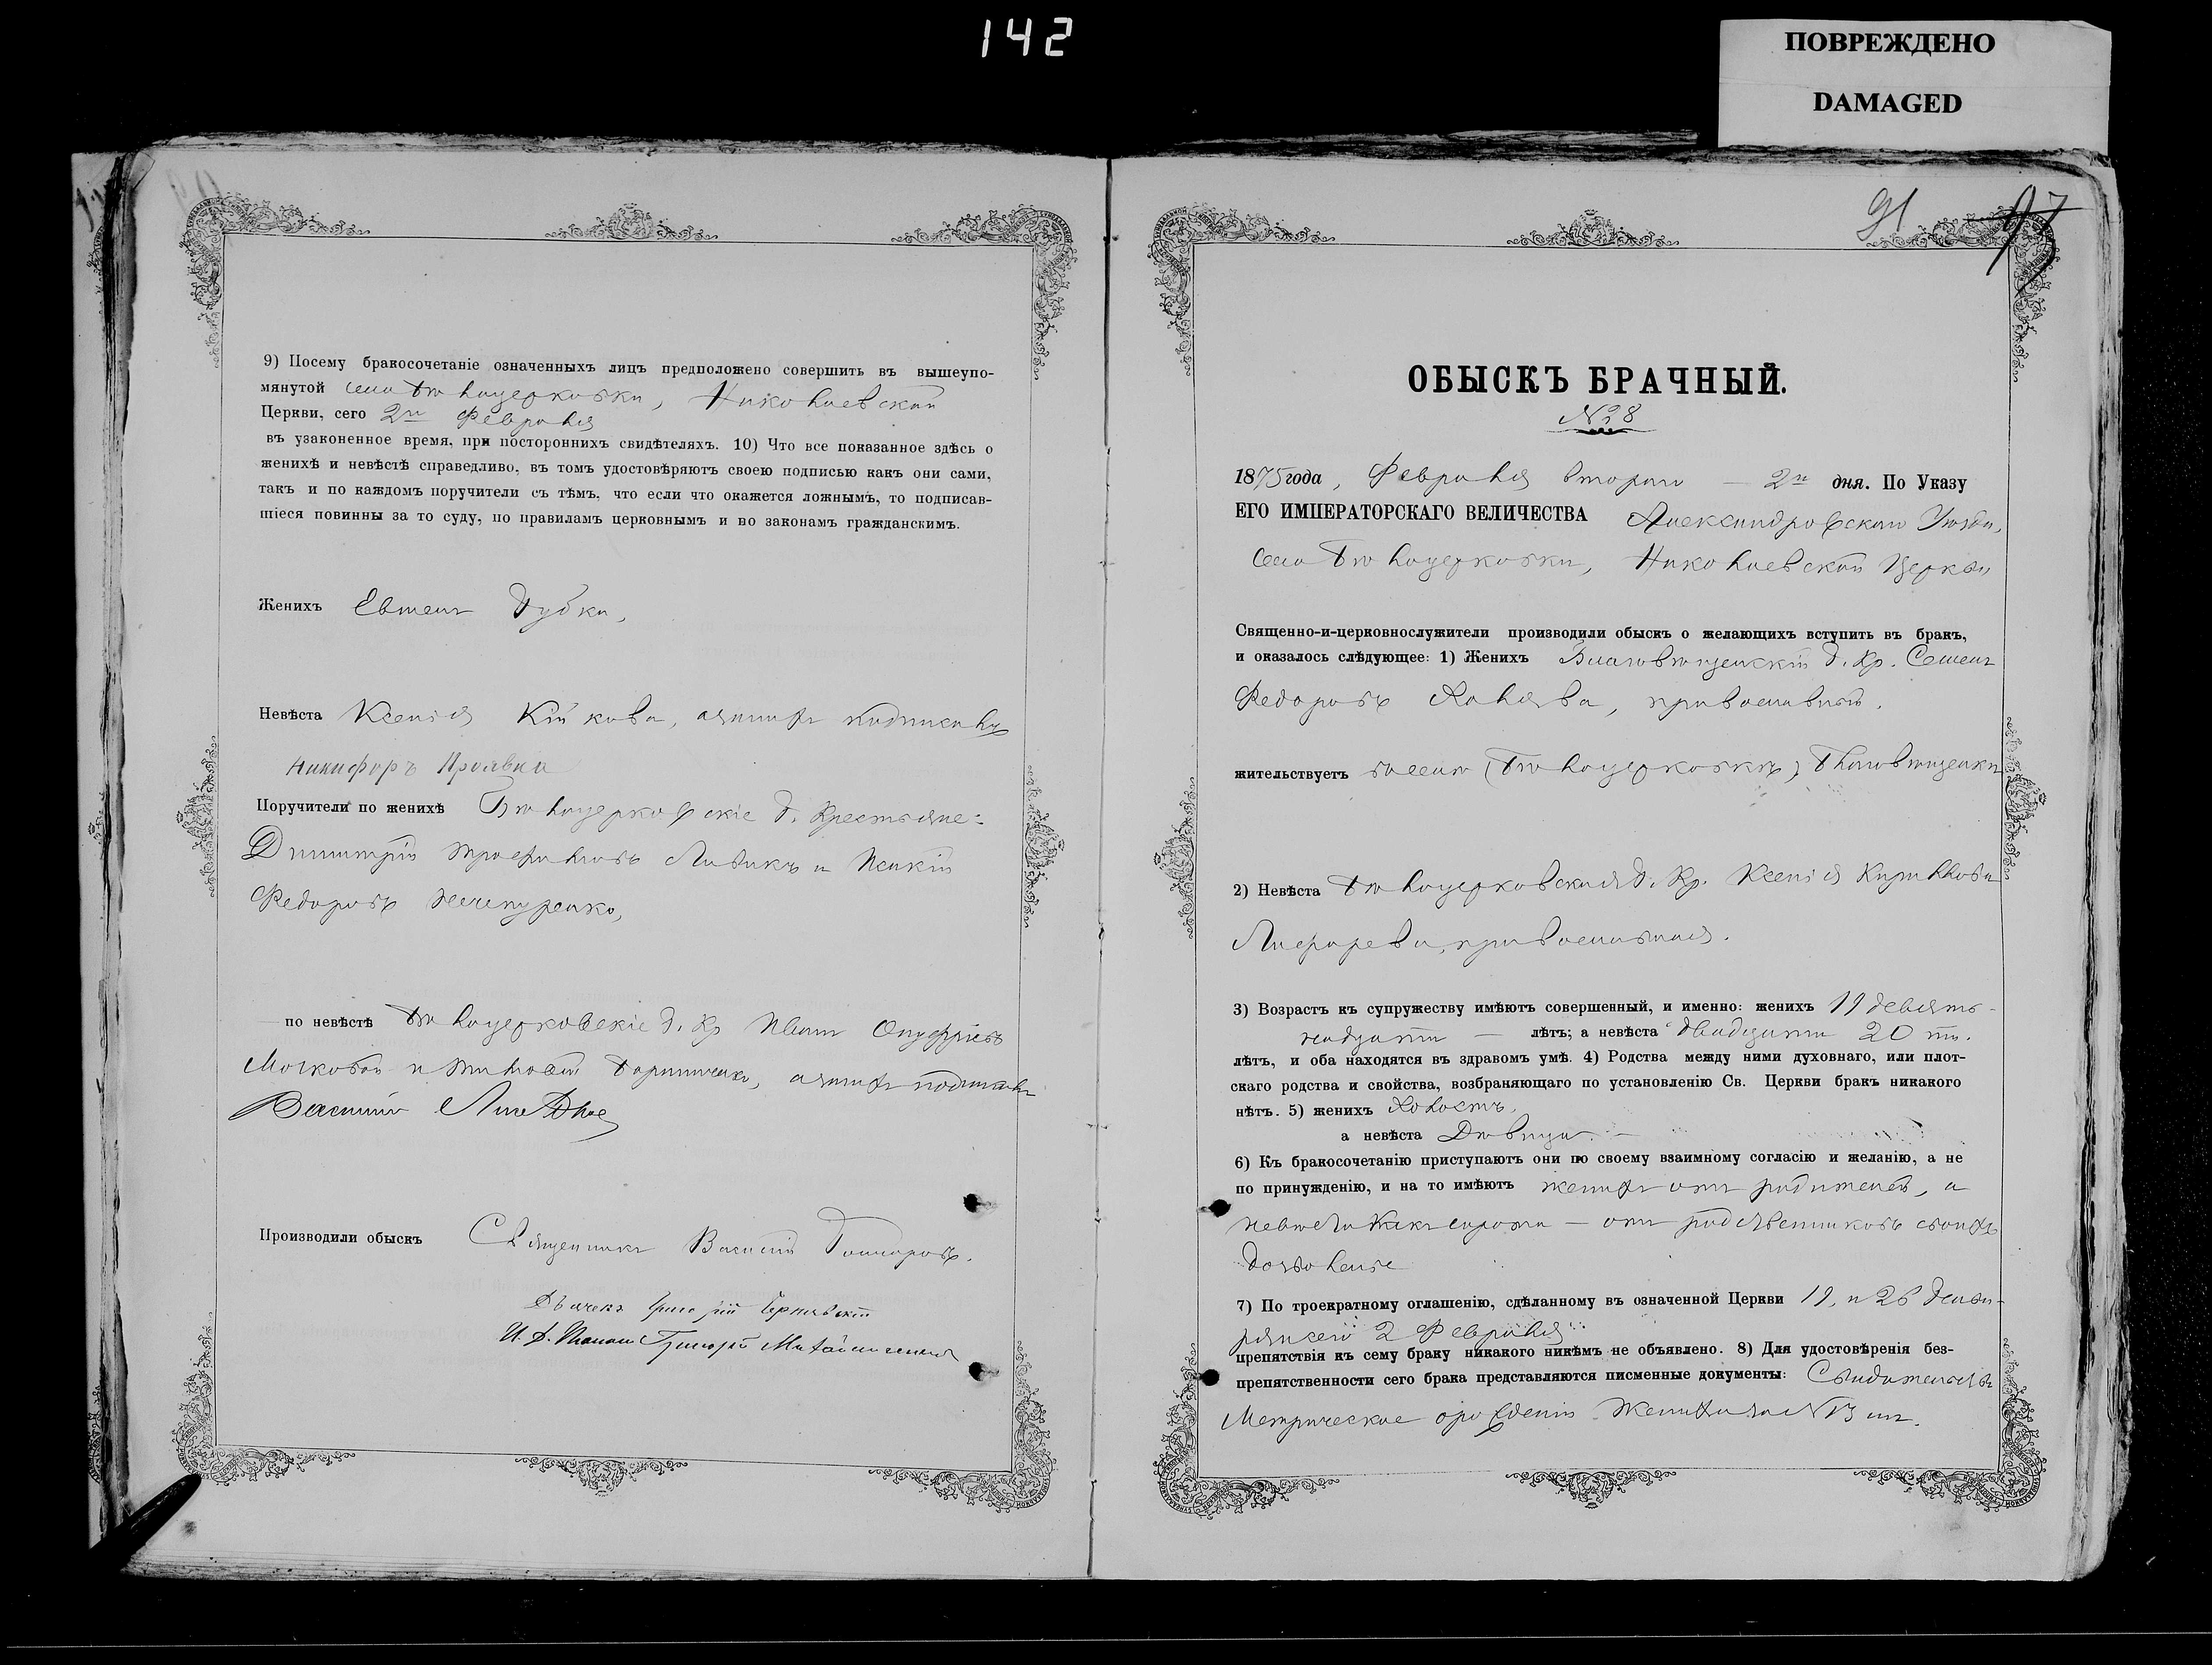 142
ПОВРЕЖДЕНО
DAMAGED
9) Посему бракосочетаніе означенныхъ лицъ предположено совершить въ вышеупо-
мянутой села Бѣлоцерковки, Николаевской
Церкви, сего 2го Февраля
въ узаконенное время, при постороннихъ свидѣтеляхъ. 10) Что все показанное здѣсь о
женихѣ и невѣстѣ справедливо, въ томъ удостовѣряютъ своею подписью какъ они сами,
такъ и по каждомъ поручители съ тѣмъ, что если что окажется ложнымъ, то подписав-
шіеся повинны за то суду, по правиламъ церковнымъ и по законамъ гражданскимъ.
Женихъ Дубка,
Невѣста Ксенія
Никифоръ
Поручители по женихѣ Бѣлоцерковскіе д. Крестьяне:
Димитрій Трофимовъ и
Федоровъ Нечипуренко,
по невѣстѣ Бѣлоцерковскіе д. Кр Иванъ Онуфріевъ
и
Василий
Производили обыскъ Священникъ Василій Гончаровъ.
Дьячекъ Григорій
И. д. Григорій
91 97
ОБЫСКЪ БРАЧНЫЙ.
№ 28
1875 года, Февраля втораго — 2го дня. По Указу
ЕГО ИМПЕРАТОРСКАГО ВЕЛИЧЕСТВА Александровскаго Уѣзда,
села Бѣлоцерковки, Николаевской Церкви
Священно-и-церковнослужители производили обыскъ о желающихъ вступить въ бракъ,
и оказалось слѣдующее: 1) Женихъ Благовѣщенскій д. Кр. Семенъ
Федоровъ Халява, православный.
жительствуетъ въ селѣ (Бѣлоцерковкѣ) Благовѣщенкѣ
2) Невѣста Бѣлоцерковская д. Кр. Ксенія Кириллова
православная.
3) Возрастъ къ супружеству имѣютъ совершенный, и именно: женихъ 19 девять-
надцати — лѣтъ; а невѣста двадцати 20 ти.
лѣтъ, и оба находятся въ здравомъ умѣ. 4) Родства между ними духовнаго, или плот-
скаго родства и свойства, возбраняющаго по установленію Св. Церкви бракъ никакого
нѣтъ. 5) женихъ Холостъ,
а невѣста Дѣвица. —
6) Къ бракосочетанію приступаютъ они по своему взаимному согласію и желанію, а не
по принужденію, и на то имѣютъ женихъ отъ родителей, а
невѣста какъ сирота — отъ родственниковъ своихъ
дозволеніе
7) По троекратному оглашенію, сдѣланному въ означенной Церкви 19, и 26 Генва-
ря и сего 2 Февраля
препятствія къ сему браку никакого никѣмъ не объявлено. 8) Для удостовѣренія без-
препятственности сего брака представляются писменные документы: Свидѣтельство
Метрическое о рожденіи жениха за №